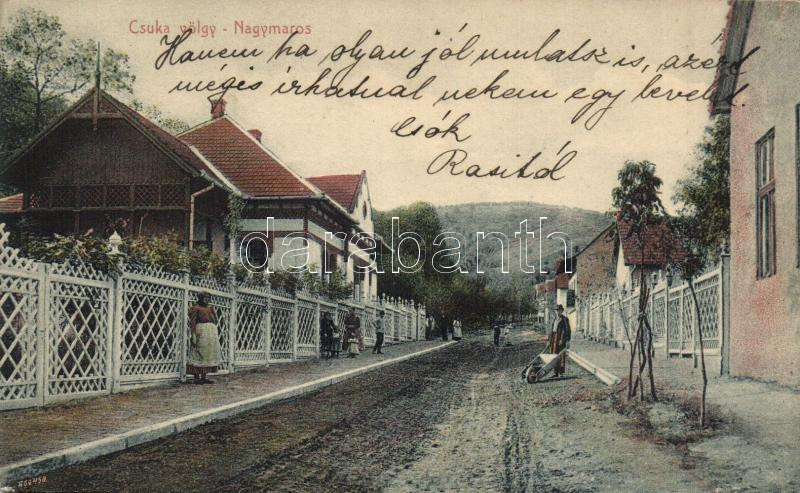 Csuka völgy - Nagymaros
Hanem ha olyan jól mulatsz is, azért
mégis írhatnál nekem egy levelet
Csók
Rasitól
darabanth